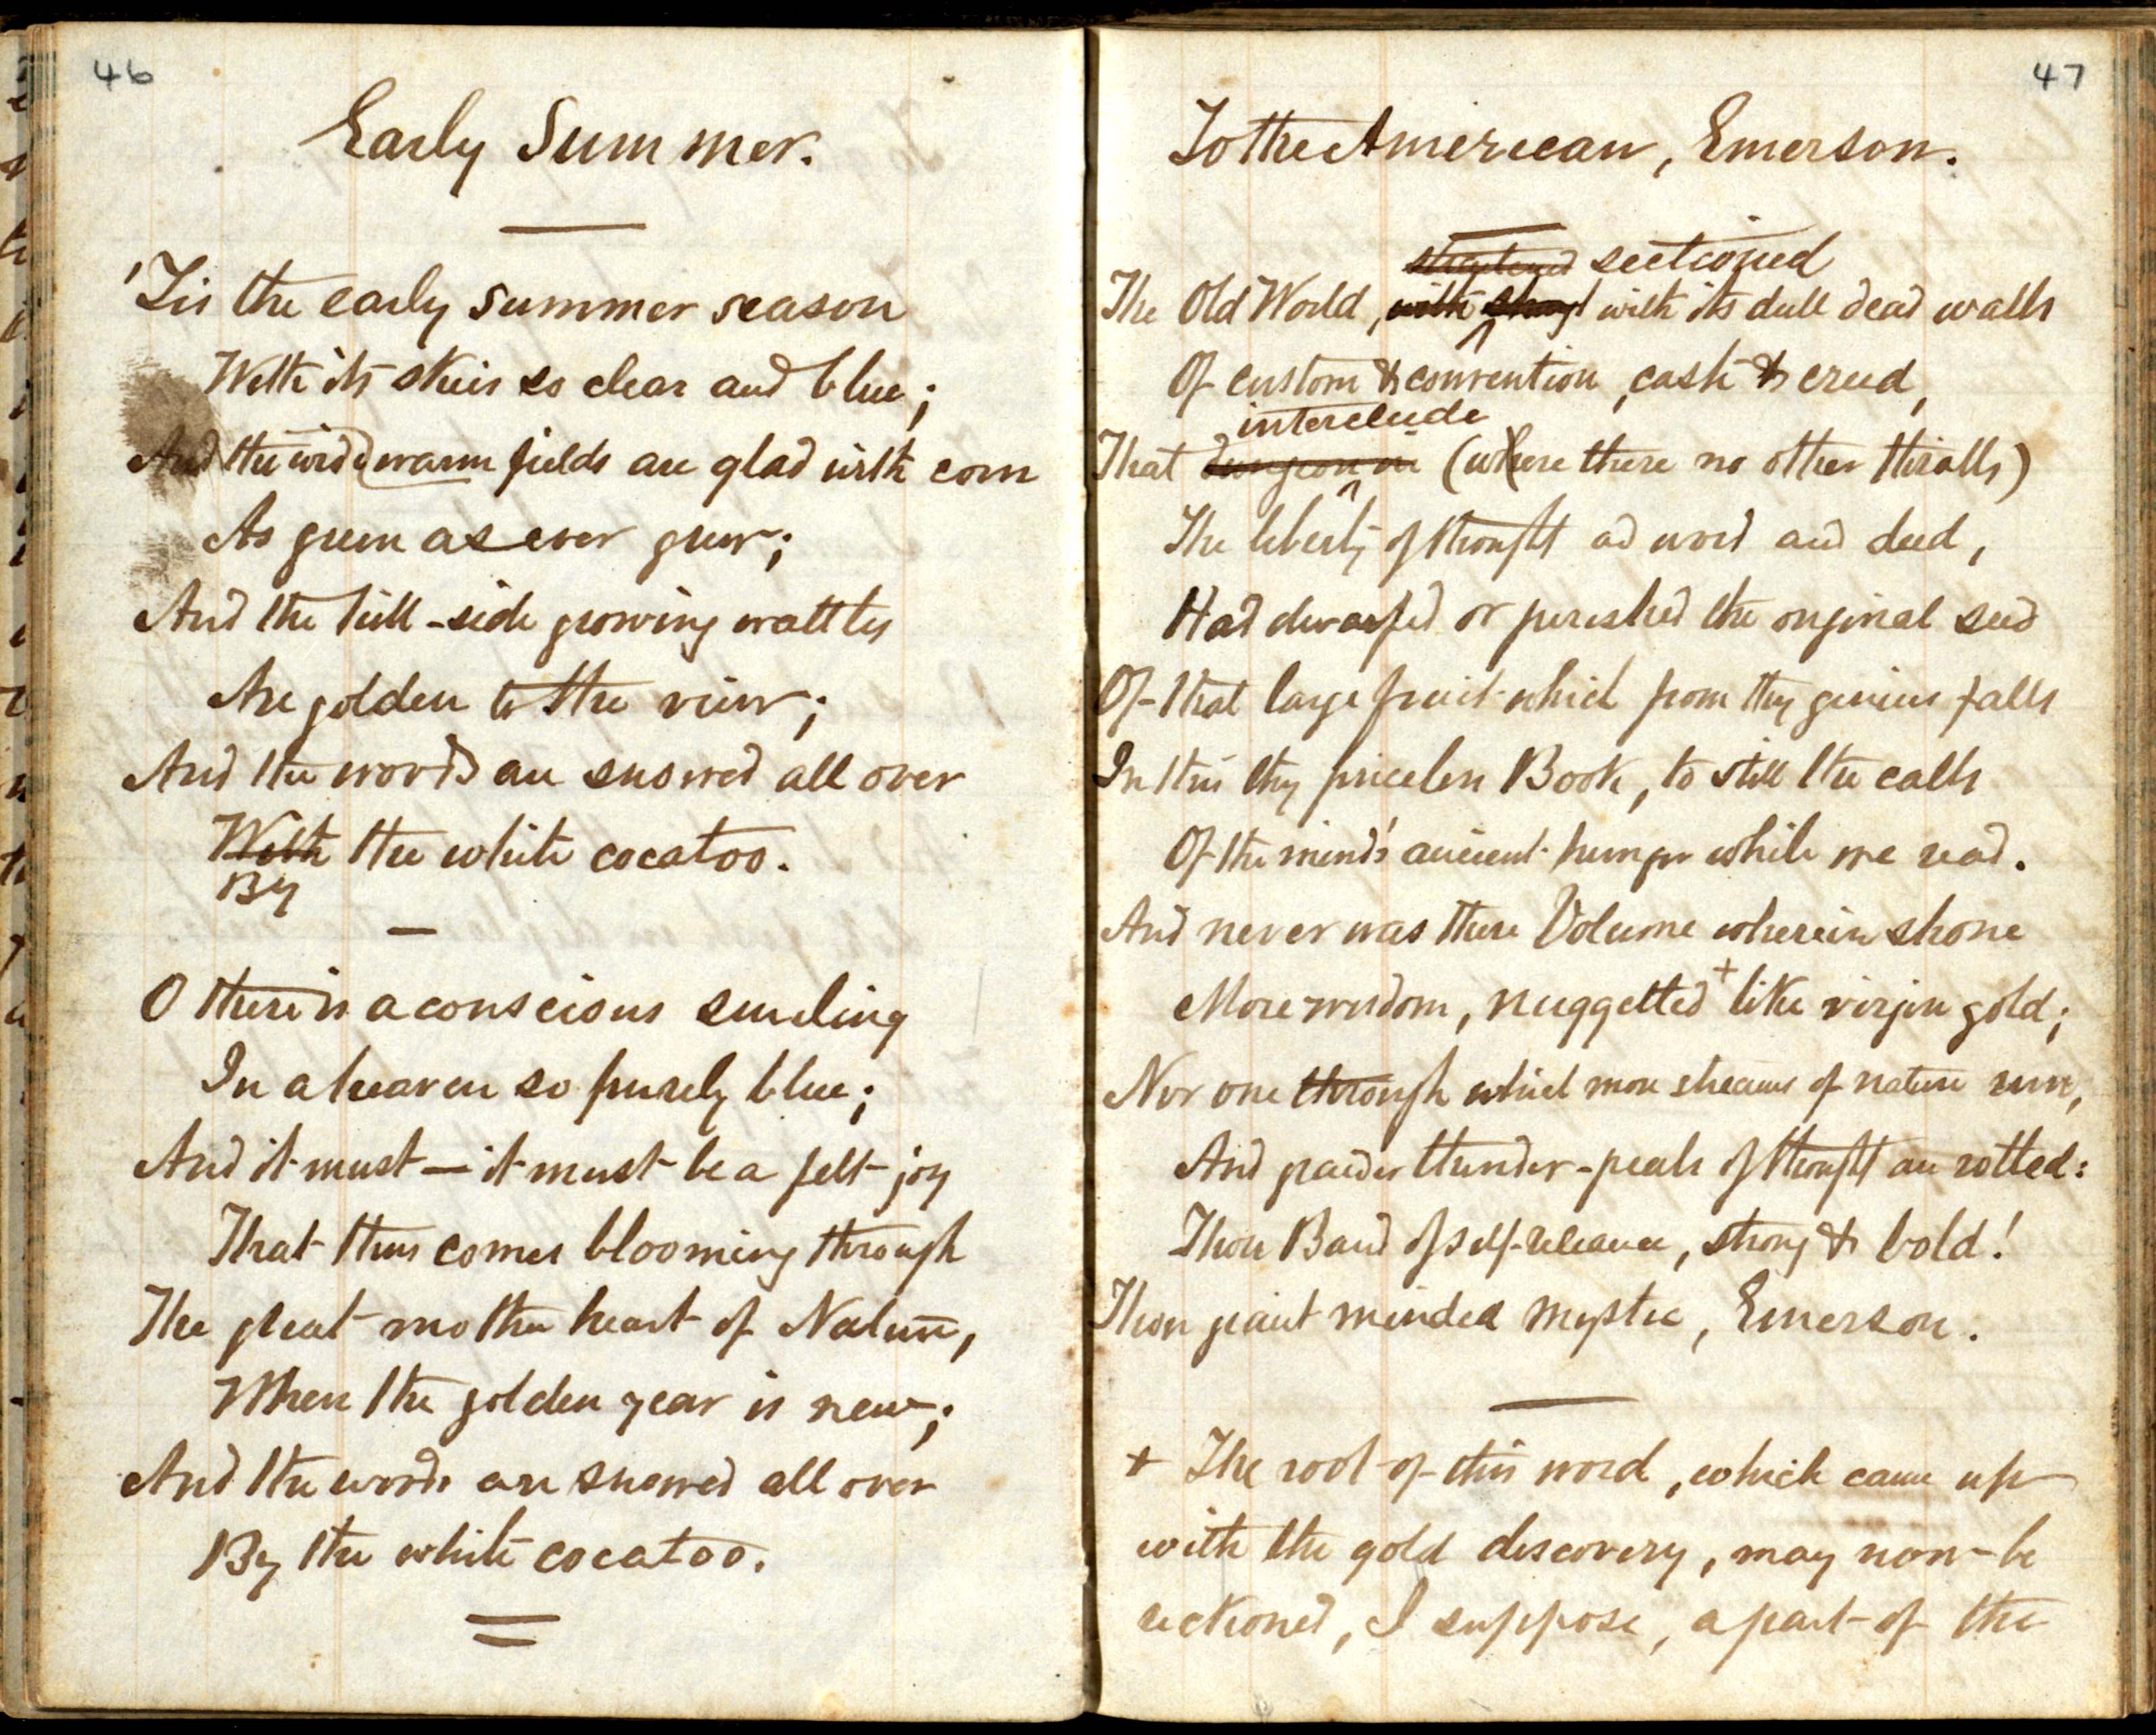 46
Early Summer.
'Tis the early summer season
With its skies so clear and blue;
And the wide warm fields are glad with corn
As green as ever grew;
And the hill-side growing wattles
Are golden to the view;
And the woods are snowed all over
With the white cocatoo.
By
O there is a conscious smiling
In a heaven so purely blue;
And it must — it must be a felt joy
That thus comes blooming through
The great mother heart of Nature,
When the golden year is new;
And the woods are snowed all over
By the white cocatoo.
47
To the American, Emerson.
sectioned
The Old World, with with its dull dead walls
Of custom & convention, cash & creed,
interclude
That dungeon in (where there no other thralls)
The liberty of thought ad word and deed,
Had dwarfed or perished the original seed
Of that large fruit which from thy genius falls
In this thy priceless Book, to still the calls
Of the minds' ancient hunger while we read.
And never was there Volume wherein shone
More wisdom, nuggetted + like virgin gold;
Nor one through which more streams of nature run,
And grander thunder-peals of thought are rolled:
Thou Bard of self-reliance, strong & bold!
Thou giant minded mystic, Emerson.
+ The root of this word, which came up
with the gold discovery, may now be
reckoned, I suppose, a part of the